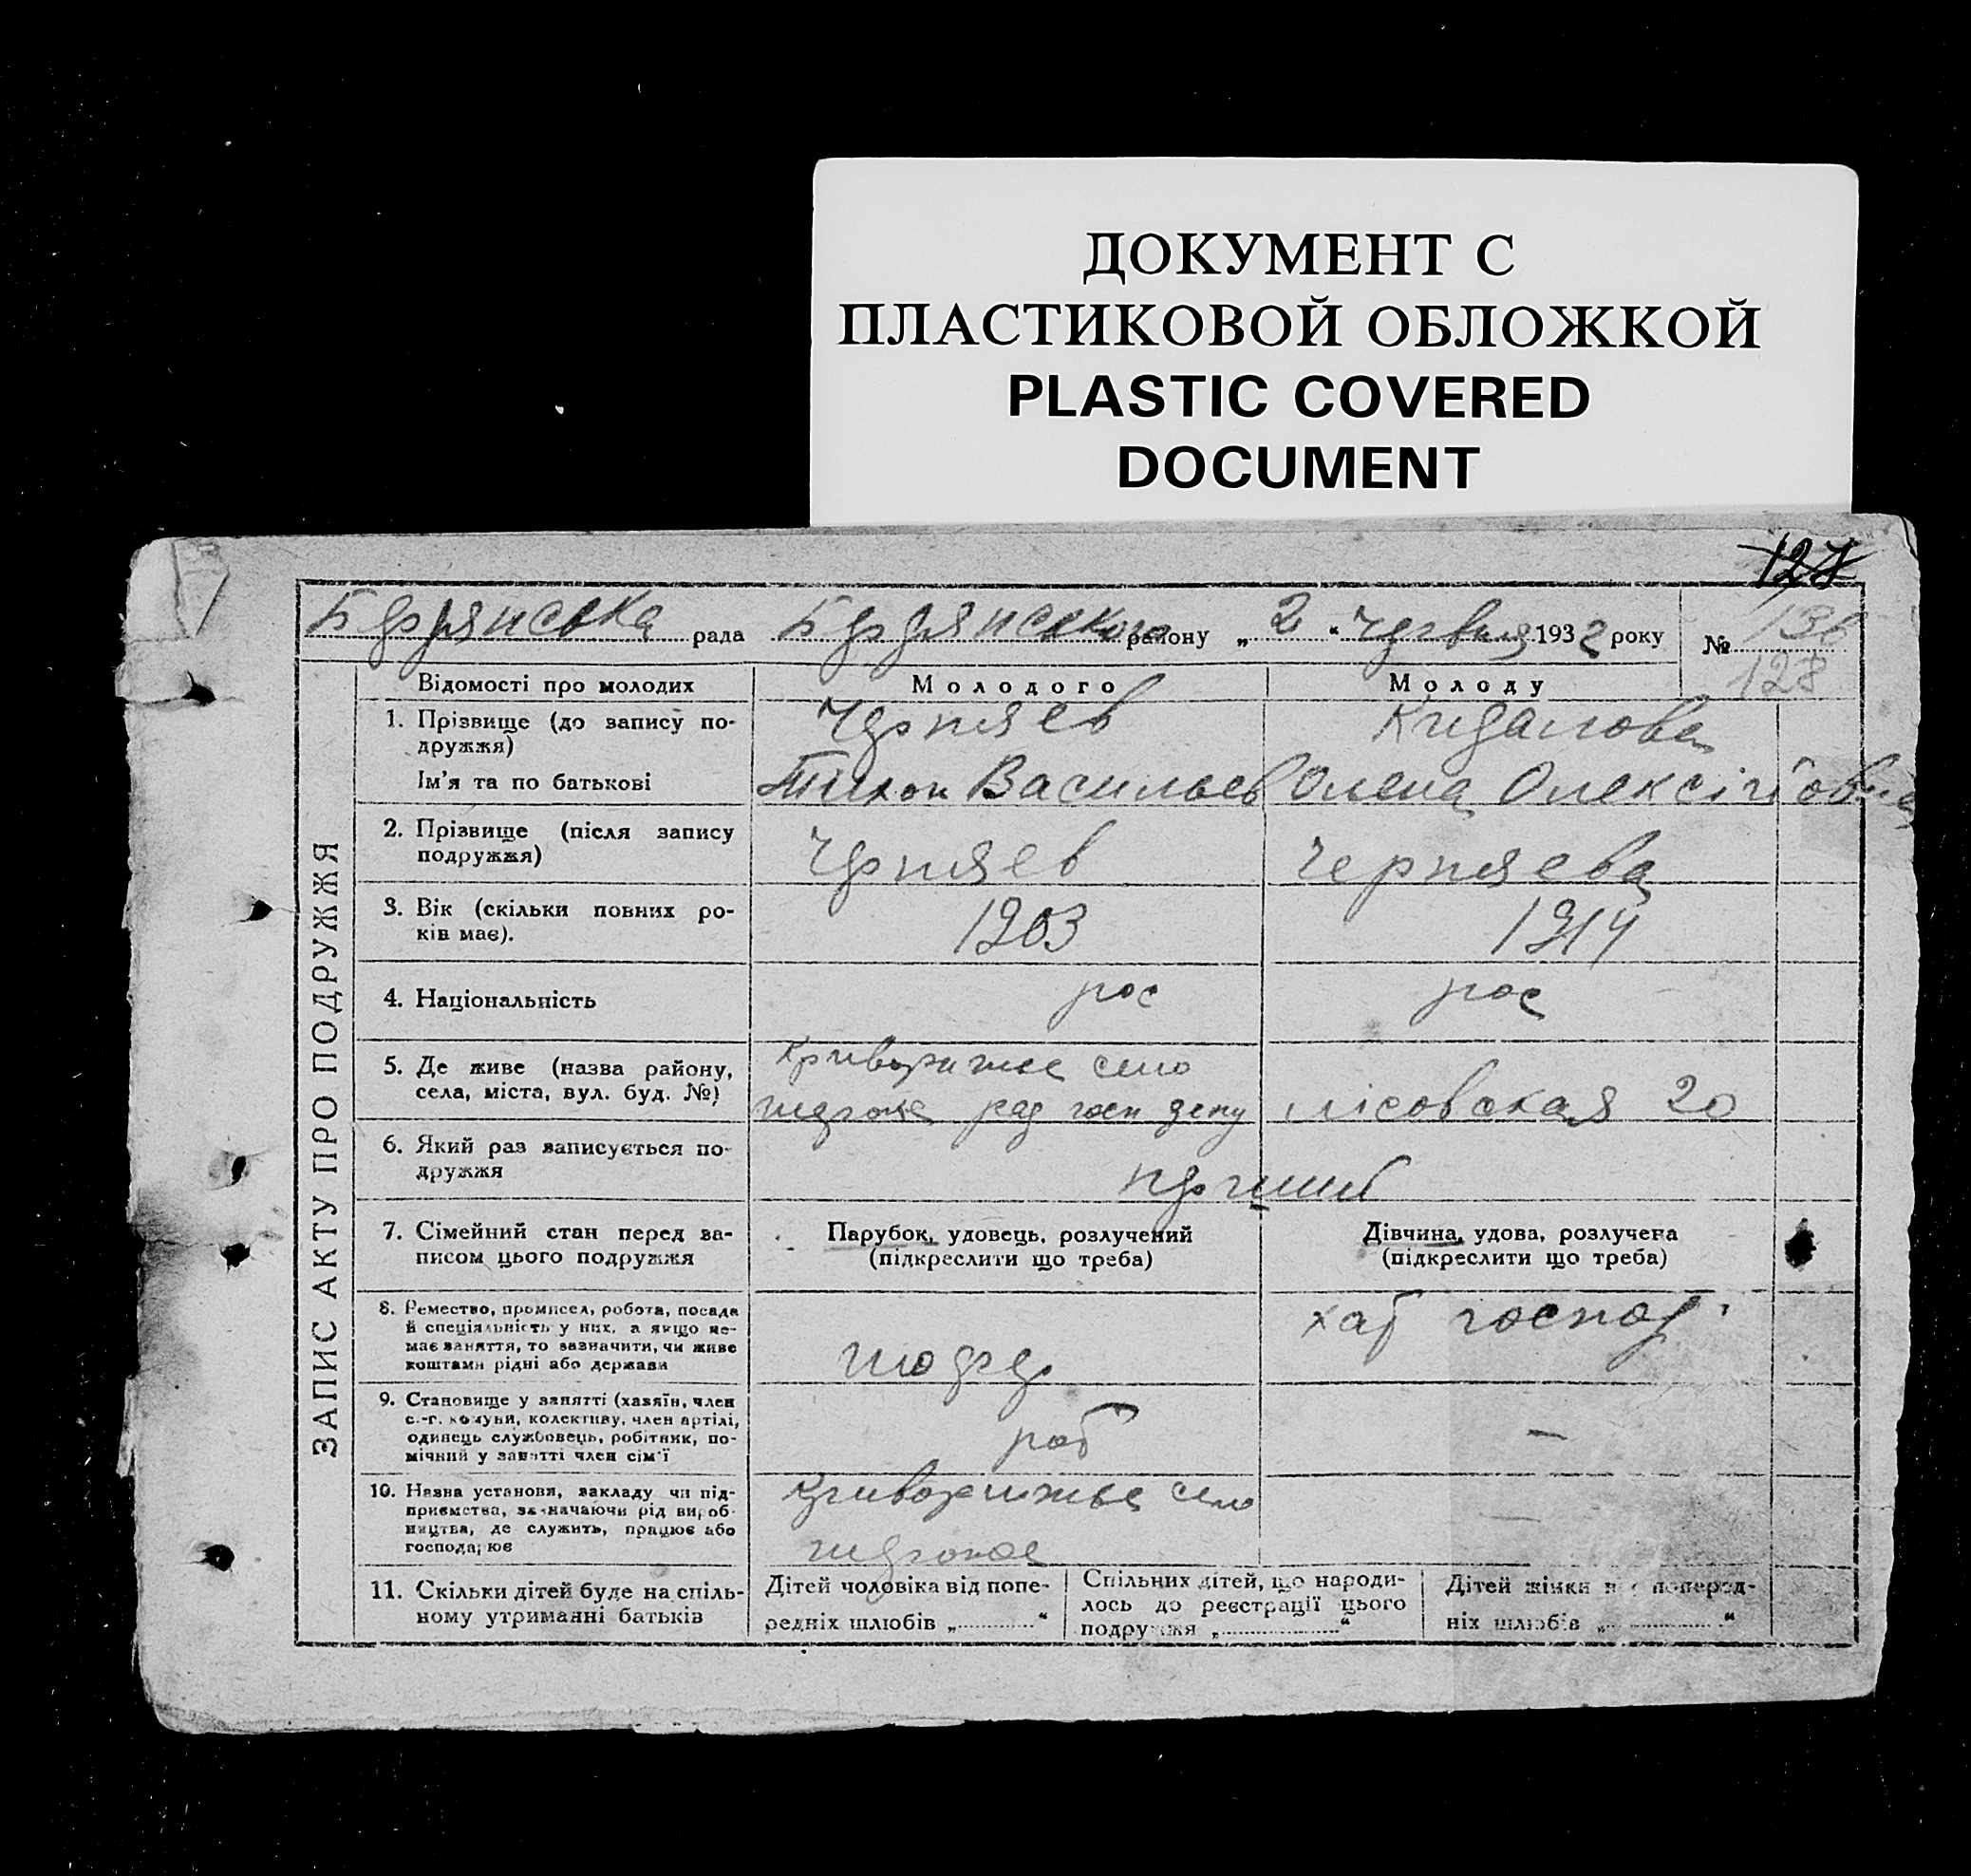 ДОКУМЕНТ С
ПЛАСТИКОВОЙ ОБЛОЖКОЙ
PLASTIC COVERED
DOCUMENT
127
Бердянська рада Бердянского району „ 2 “ червня 1932 року № 136
128
ЗАПИС АКТУ ПРО ПОДРУЖЖЯ
Відомості про молодих Молодого Молоду
1. Прізвище (до запису по-
дружжя)
Черняев Кидалова
Ім'я та по батькові Тихон Васильев Олена Олексіївна
2. Прізвище (після запису
подружжя)
Черняев Черняева
3. Вік (скільки повних ро-
ків має).
1903 1914
4. Національність рос рос
5. Де живе (назва району,
села, міста, вул. буд. №)
село
лісовская 20
6. Який раз записується по-
дружжя
перший
7. Сімейний стан перед за-
писом цього подружжя
Парубок, удовець, розлучений
(підкреслити що треба)
Дівчина, удова, розлучена
(підкреслити що треба)
8. Ремество, промисел, робота, посада
й спеціяльність у них, а якщо не-
має заняття, то зазначити, чи живе
коштами рідні або держави
шофер хат господ
9. Становище у занятті (хазяїн, член
с.-г. комуни, колективу, член артілі,
одинець службовець, робітник, по-
мічний у занятті член сім'ї
роб —
10. Назва установи, закладу чи під-
приємства, зазначаючи рід вироб-
ництва, де служить, працює або
господарює
село
—
11. Скільки дітей буде на спіль-
ному утриманні батьків
Дітей чоловіка від попе-
редніх шлюбів „............“
Спільних дітей, що народи-
лось до реєстрації цього
подружжя „............“
Дітей жінки від поперед-
ніх шлюбів „............“